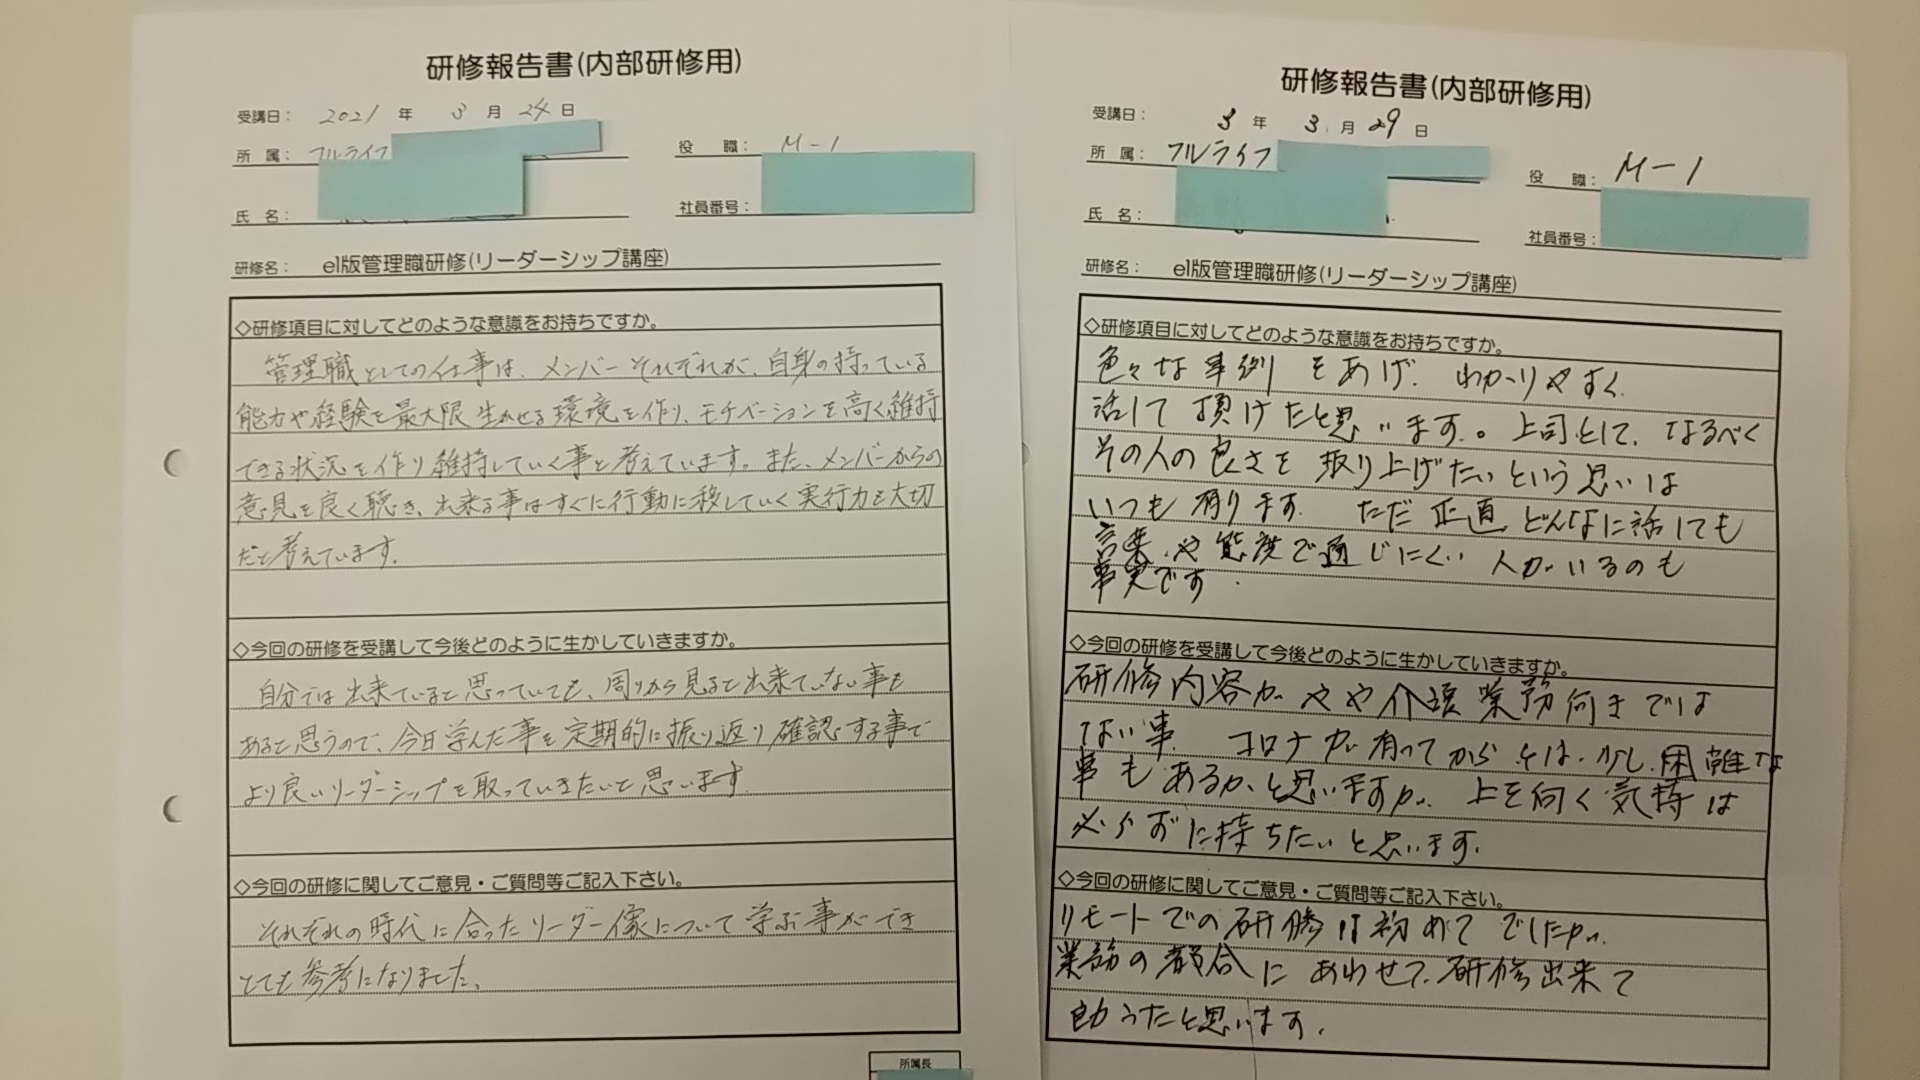 研修報告書(内部研修用)
受講日: 2021 年 3 月 24 日
所 属: フルライフ
役 職: M-1
氏 名:
社員番号:
研修名: el版管理職研修(リーダーシップ講座)
◇研修項目に対してどのような意識をお持ちですか。
管理職としての仕事は、メンバーそれぞれが、自身の持っている
能力や経験を最大限生かせる環境を作り、モチベーションを高く維持
できる状況を作り維持していく事と考えています。また、メンバーからの
意見を良く聴き、出来る事はすぐに行動に移していく実行力も大切
だと考えています。
◇今回の研修を受講して今後どのように生かしていきますか。
自分では出来ていると思っていても、周りから見ると出来ていない事も
あると思うので、今日学んだ事を定期的に振り返り確認する事で
より良いリーダーシップを取っていきたいと思います。
◇今回の研修に関してご意見・ご質問等ご記入下さい。
それぞれの時代に合ったリーダー像について学ぶ事ができ
とても参考になりました。
所属長
研修報告書(内部研修用)
受講日: 3 年 3 月 29 日
所 属: フルライフ
役 職: M-1
氏 名:
社員番号:
研修名: el版管理職研修(リーダーシップ講座)
◇研修項目に対してどのような意識をお持ちですか。
色々な事例をあげ、わかりやすく
話して頂けたと思います。上司として、なるべく
その人の良さを取り上げたいという思いは
いつも有ります。ただ正直どんなに話しても
言葉や態度で通じにくい人がいるのも
事実です。
◇今回の研修を受講して今後どのように生かしていきますか。
研修内容が、やや介護業務向きでは
ない事、コロナが有ってから 少し困難な
事もあるかと思いますが、上を向く気持は
必らずに持ちたいと思います。
◇今回の研修に関してご意見・ご質問等ご記入下さい。
リモートでの研修は初めてでしたが、
業務の都合にあわせて、研修出来て
助かったと思います。